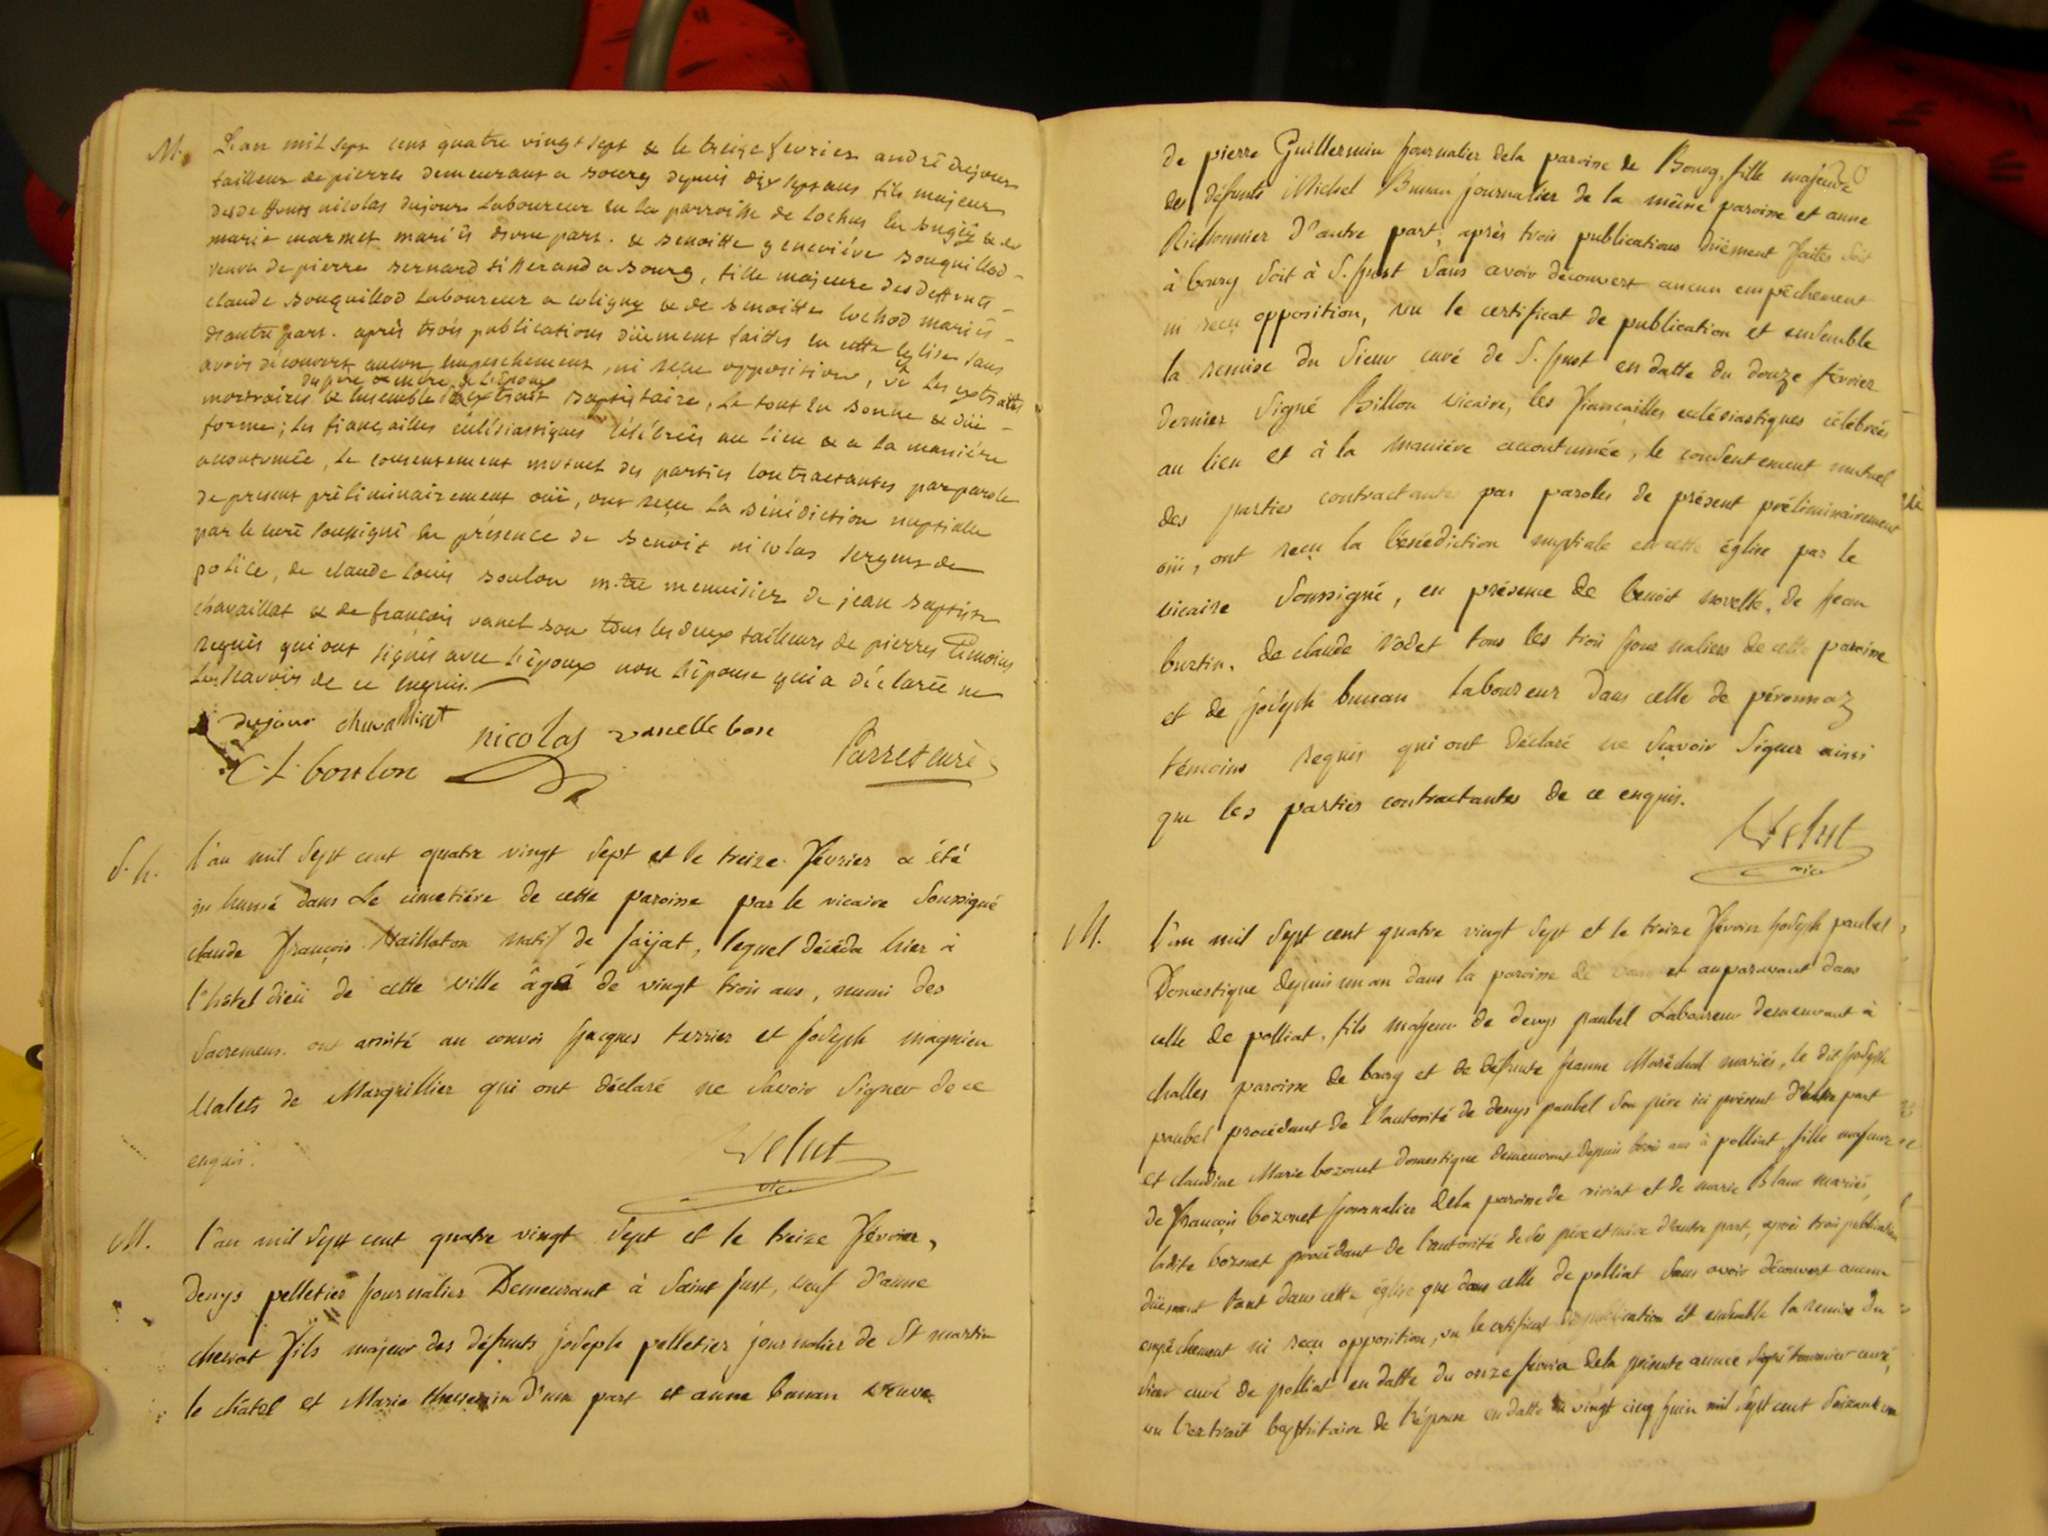 M. L'an mil sept cens quatre vingt sept & le treize fevrier andré dujour
tailleur de pierre demeurant a bourg depuis dix sept ans fils majeur
des deffunts nicolas dujour laboureur en la parroisse de lochus en bugey & de
marie marmet mariés d'une part. & benoitte geneviéve bouquillod
veuve de pierre bernard tisserand a bourg, fille majeure des deffunts
claude bouquillod laboureur a coligny & de benoitte lochod mariés
d'autre part. après trois publications düement faittes en cette eglise sans
avoir découvert aucun empeschement, ni reçu opposition, vu les extraits
du père & mère de l'époux
mortuaires & ensemble l'extrait baptistaire, le tout en bonne & düe
forme; les fiançailles écclésiastiques célébrées au lieu & a la maniére
accoutumée, le consentement mutuel des parties contractantes par parole
de present préliminairement oüi, ont reçu la bénédiction nuptialle
par le curé soussigné en présence de benoit nicolas sergent de
police, de claude louis boulon m.tre menuisier de jean baptiste
chavaillat & de françois vanel bon tous les deux tailleurs de pierres témoins
requis qui ont signés avec l'époux non l'épouse qui a déclaré ne
le sçavoir de ce enquis.
dujour chavalliat nicolas vanelle bon
C. L. boulon Parret curé
S. h. l'an mil sept cent quatre vingt sept et le treize février a été
inhumé dans le cimetiére de cette paroisse par le vicaire soussigné
claude françois Maillaton natif de jaÿat, lequel décéda hier à
l'hôtel dieü de cette ville âgé de vingt trois ans, muni des
sacremens. ont assisté au convoi jacques terrier et joseph magnien
valets de Marguillier qui ont déclaré ne savoir signer de ce
enquis. Velut
vic.
M. l'an mil sept cent quatre vingt sept et le treize février,
denys pelletier journalier Demeurant à saint just, veuf d'anne
chevat fils majeur des défunts joseph pelletier journalier de St martin
le châtel et Marie d'une part et anne bunan veuve
de pierre Guillermin journalier de la paroisse de Bourg, fille majeure
des défunts Michel Bunan journalier de la même paroisse et anne
d'autre part, après trois publications düement faites soit
à bourg soit à S. just sans avoir découvert aucun empêchement
ni reçu opposition, vu le certificat de publication et ensemble
la remise du sieur curé de S. just en datte du douze février
dernier signé Billon vicaire, les fiancailles ecclésiastiques célébrées
au lieu et à la maniére accoutumée, le consentement mutuel
des parties contractantes par paroles de présent préliminairement
oüi, ont reçu la bénédiction nuptiale en cette église par le
vicaire soussigné, en présence de benoit novelle, de jean
burtin, de claude vodet tous les trois journaliers de cette paroisse
et de joseph bunan laboureur dans celle de péronnaz
témoins requis qui ont déclaré ne sçavoir signer ainsi
que les parties contractantes de ce enquis.
Velut
vic.
M. l'an mil sept cent quatre vingt sept et le treize février joseph paubel
Domestique depuis un an dans la paroisse de et auparavant dans
celle de polliat, fils majeur de denys paubel Laboureur demeurant à
challes paroisse de bourg et de défunte jeanne Maréchal mariés, le dit joseph
paubel procédant de l'autorité de denys paubel son père ici présent d'une part
et claudine Marie bozonet domestique demeurant depuis trois ans à polliat, fille majeure
de françois bozonet journalier de la paroisse de viriat et de marie blanc mariés,
ladite bozonet procédant de l'autorité de ses père et mère d'autre part, après trois publications
düement tant dans cette église que dans celle de polliat sans avoir découvert aucun
empêchement ni reçu opposition, vu le certificat de publication et ensemble la remise du
sieur curé de polliat en datte du onze février de la présente année signé tournier curé,
vu l'extrait baptistaire de l'épouse en datte du vingt cinq juin mil sept cent soixante un